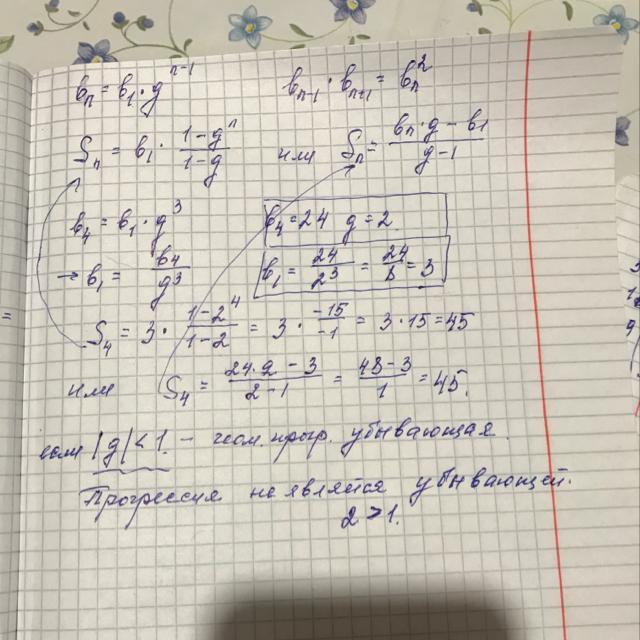 bₙ = b₁ · gⁿ⁻¹ bₙ₋₁ · bₙ₊₁ = bₙ²
Sₙ = b₁ · (1-gⁿ)/(1-g) или Sₙ = (bₙ·g - b₁)/(g-1)
b₄ = b₁ · g³ b₄ = 24 g = 2
→ b₁ = b₄/g³ b₁ = 24/2³ = 24/8 = 3
S₄ = 3 · (1-2⁴)/(1-2) = 3 · (-15)/(-1) = 3 · 15 = 45
или S₄ = (24·2 - 3)/(2-1) = (48-3)/1 = 45.
если |g| < 1. – геом. прогр. убывающая.
Прогрессия не является убывающей.
2 > 1.